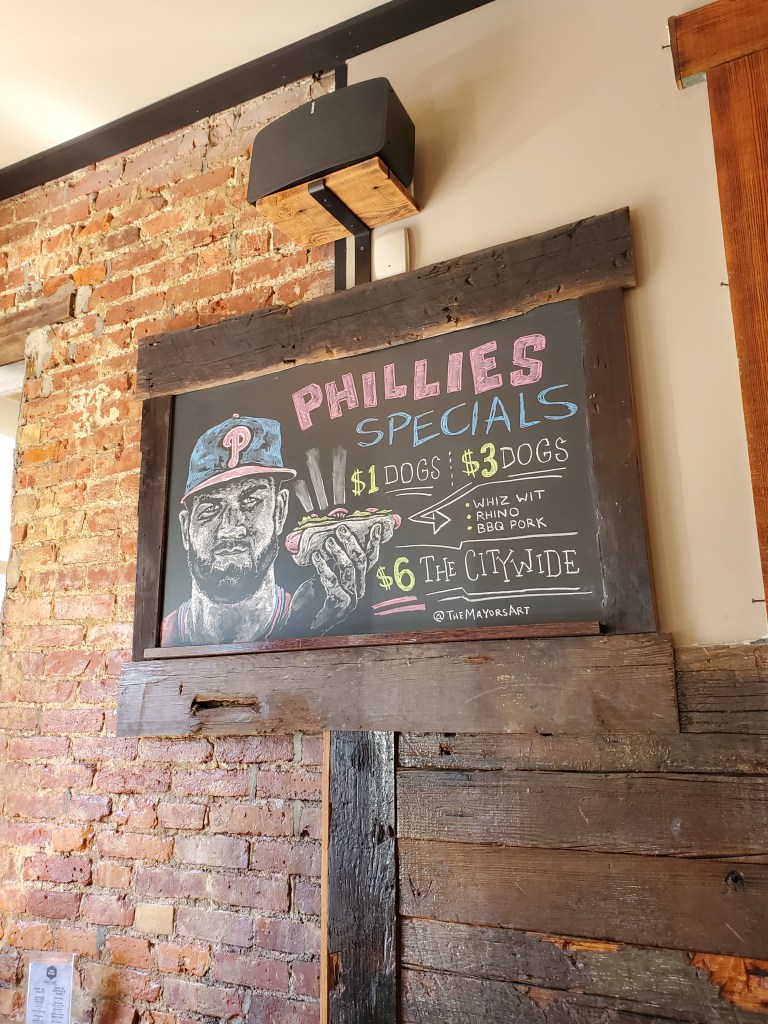 PHILLIES
SPECIALS
$1 DOGS $3 DOGS
• WHIZ WIT
• RHINO
• BBQ PORK
$6 THE CITYWIDE
@THEMAYORSART
P